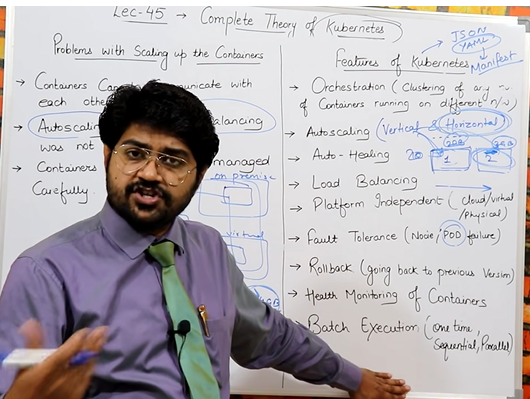 Lec-45 → Complete Theory of Kubernetes
Problems with Scaling up the Containers
→ Containers municate with
each oth
→ Autoscaling Balancing
was not
→ Containers managed
Carefully.
on premise
virtual
Features of Kubernetes
JSON
YAML
Manifest
→ Orchestration (Clustering of any
of Containers running on different n/w)
→ Autoscaling (Vertical & Horizontal)
→ Auto-Healing
1
2
→ Load Balancing
→ Platform Independent (Cloud/virtual
/Physical)
→ Fault Tolerance (Node/POD failure)
→ Rollback (going back to previous Version)
→ Health Monitoring of Containers
Batch Execution (One time,
Sequential, Parallel)